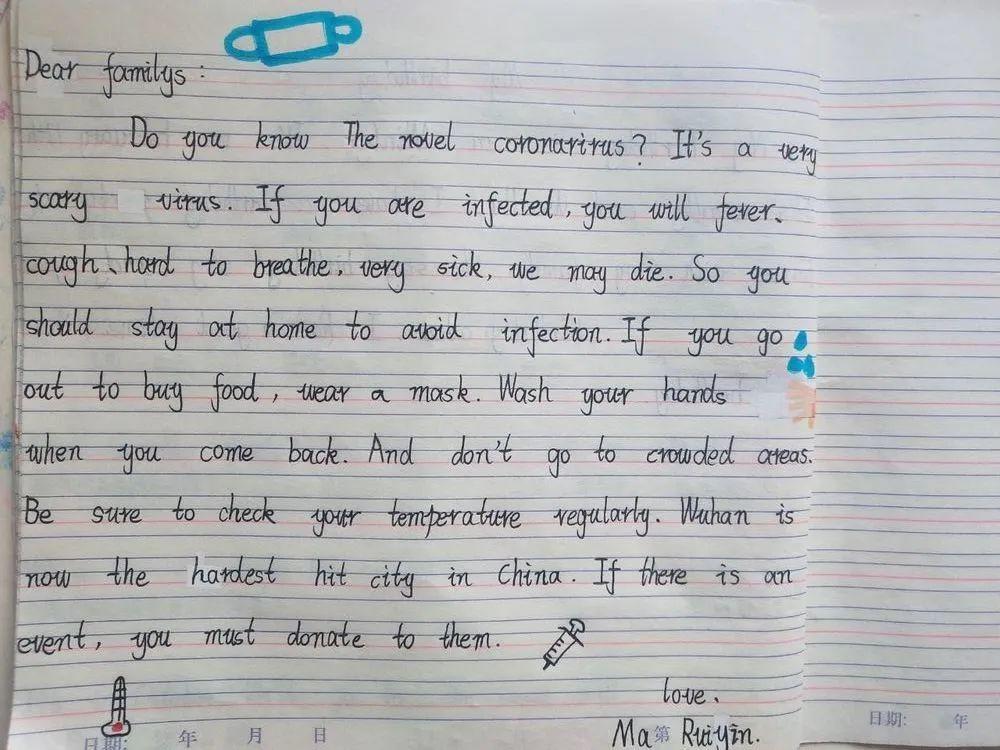 Dear familys :
Do you know The novel coronarirus? It's a very
scary virus. If you are infected, you will fever、
cough、hard to breathe, very sick, we may die. So you
should stay at home to avoid infection. If you go
out to buy food, wear a mask. Wash your hands
when you come back. And don't go to crowded areas.
Be sure to check your temperature regularly. Wuhan is
now the hardest hit city in China. If there is an
event, you must donate to them.
love.
Ma Ruiyin.
日期: 年 月 日 第
日期: 年